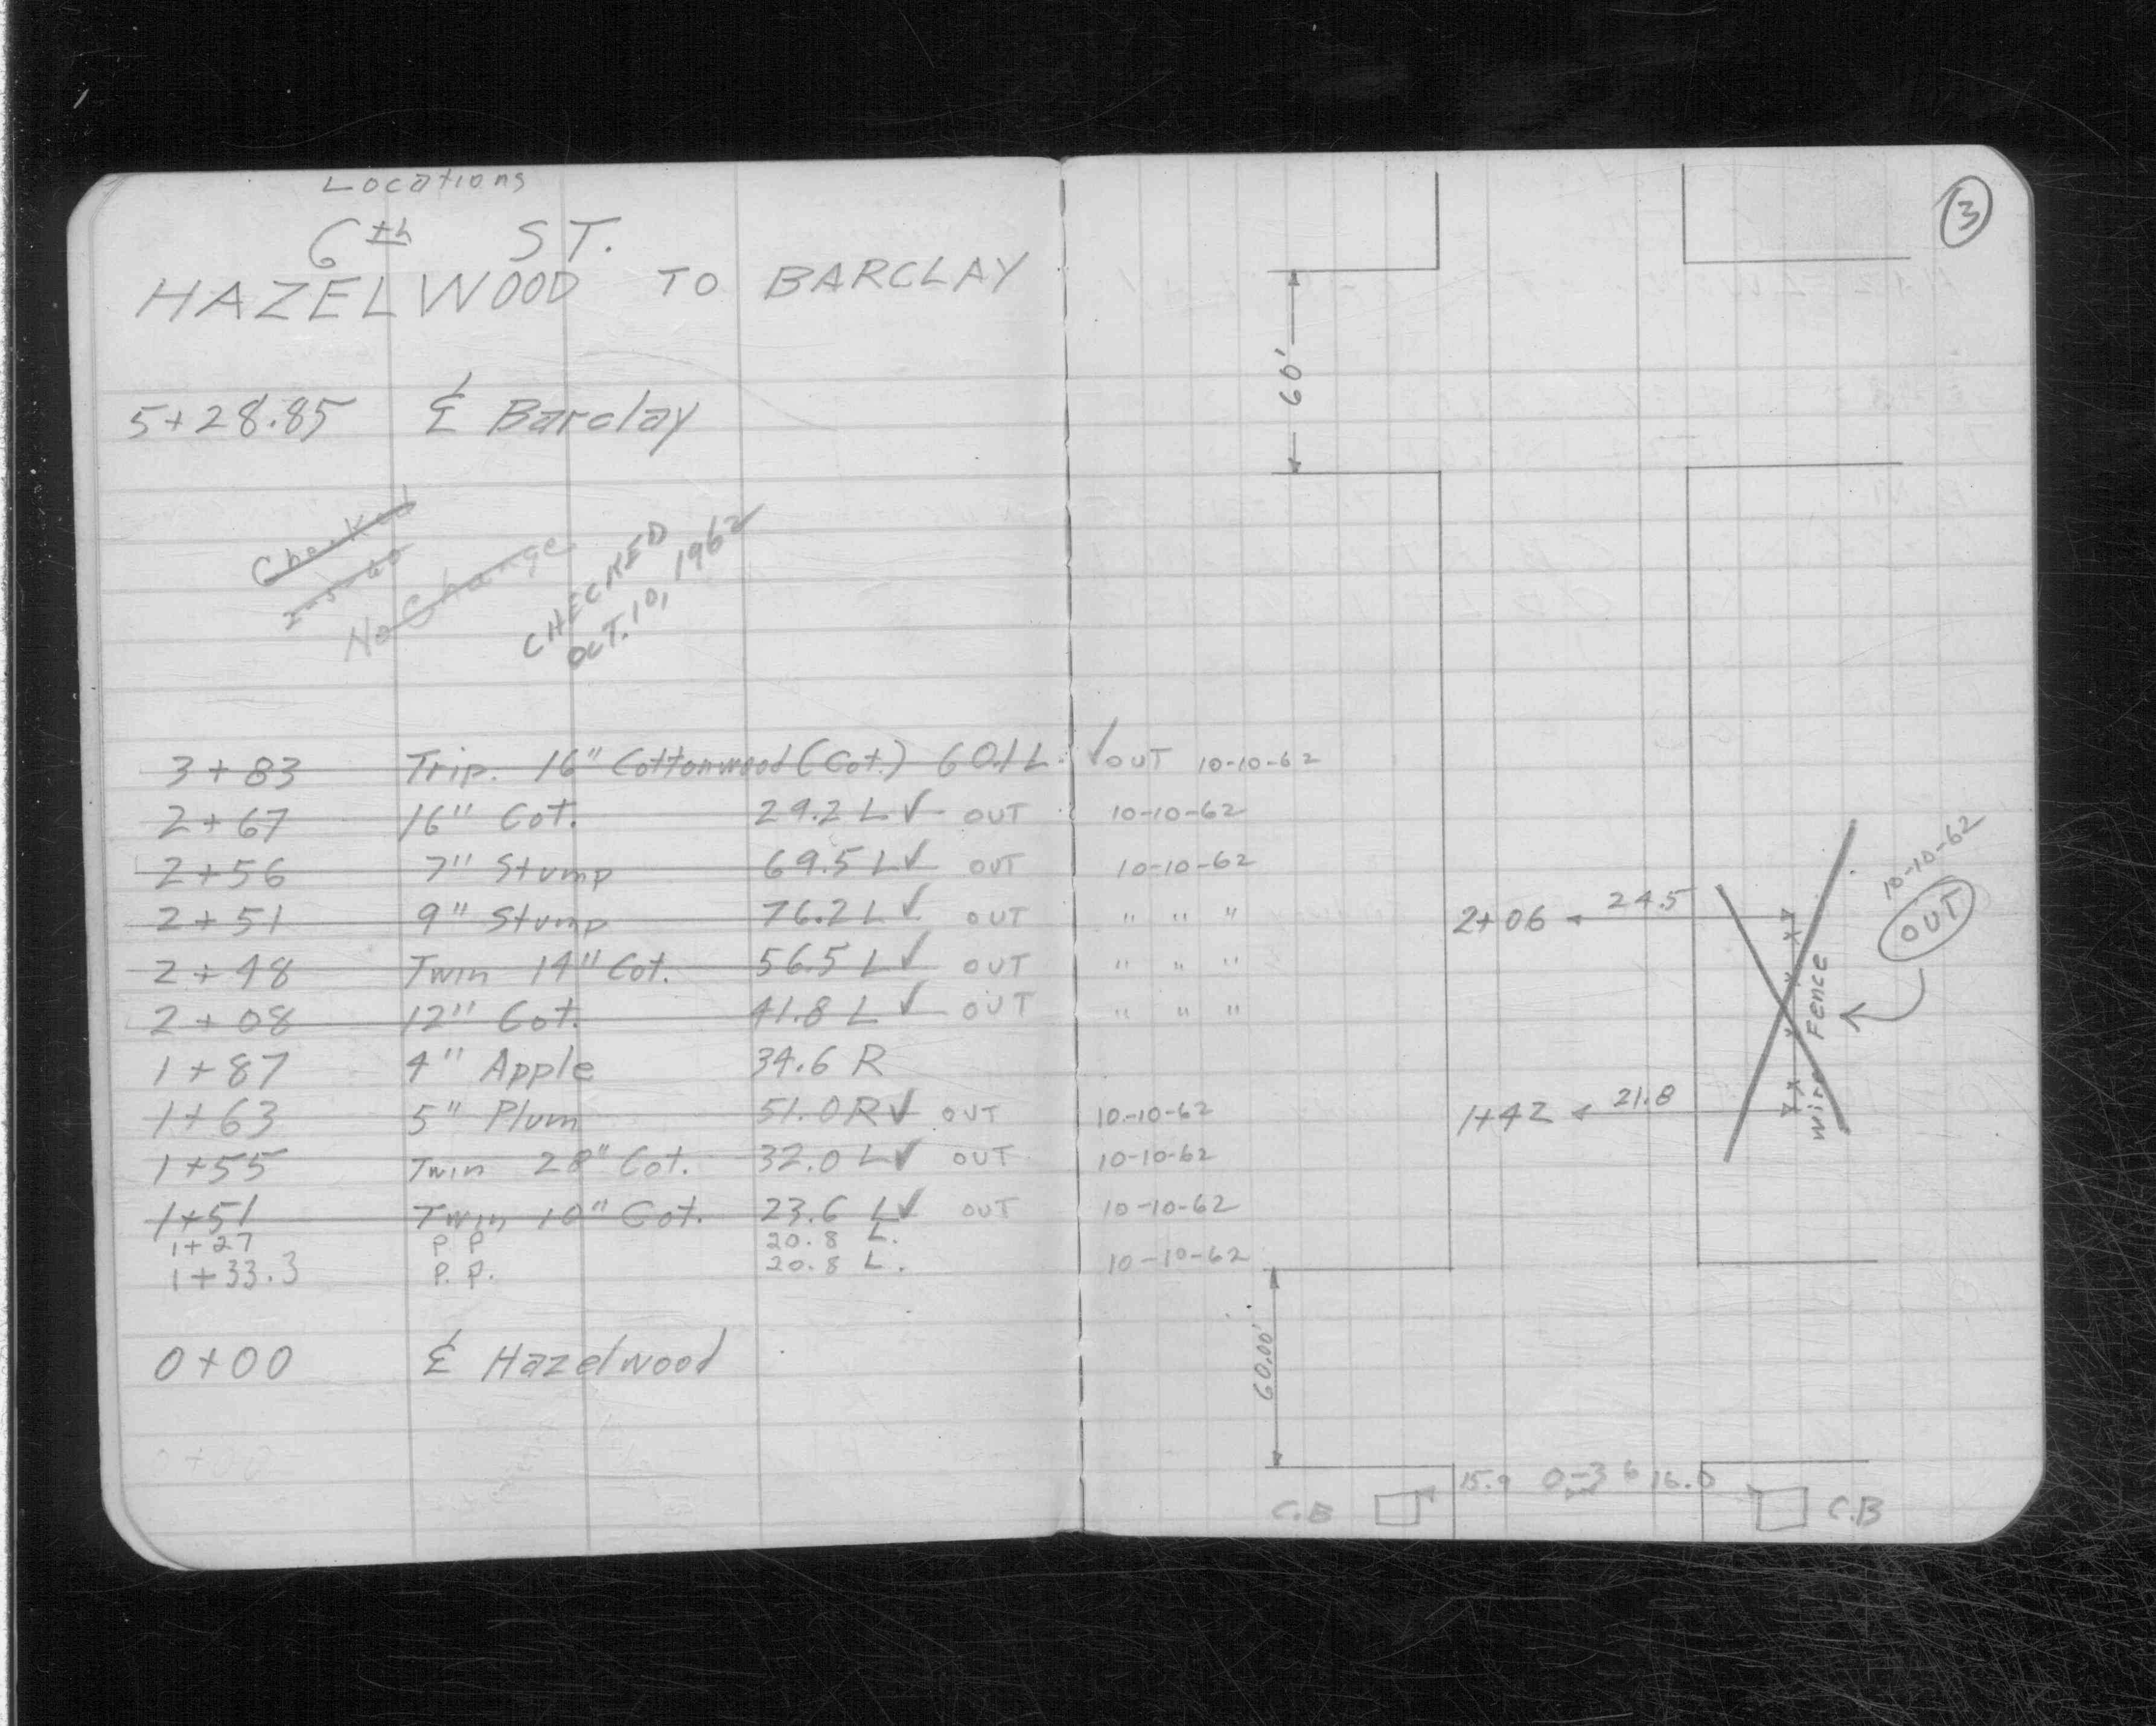 Locations
6th ST.
HAZELWOOD TO BARCLAY
5+28.85 ℄ Barclay
Checked
2-5-60
No Change
CHECKED
OCT. 10, 1962
3+83 Trip. 16" Cottonwood (Cot.) 60.1 L. ✓ OUT 10-10-62
2+67 16" Cot. 29.2 L ✓ OUT 10-10-62
2+56 7" Stump 69.5 L ✓ OUT 10-10-62
2+51 9" Stump 76.2 L ✓ OUT " " "
2+48 Twin 14" Cot. 56.5 L ✓ OUT " " "
2+08 12" Cot. 41.8 L ✓ OUT " " "
1+87 4" Apple 34.6 R
1+63 5" Plum 51.0 R ✓ OUT 10-10-62
1+55 Twin 28" Cot. 32.0 L ✓ OUT 10-10-62
1+51 Twin 10" Cot. 23.6 L ✓ OUT 10-10-62
1+27 P. P 20.8 L.
1+33.3 P. P. 20.8 L. 10-10-62
0+00 ℄ Hazelwood
0+00
3
60'
10-10-62
OUT
2+06 24.5
wire Fence
1+42 21.8
60.00'
15.9 0-36 16.0
C.B C.B